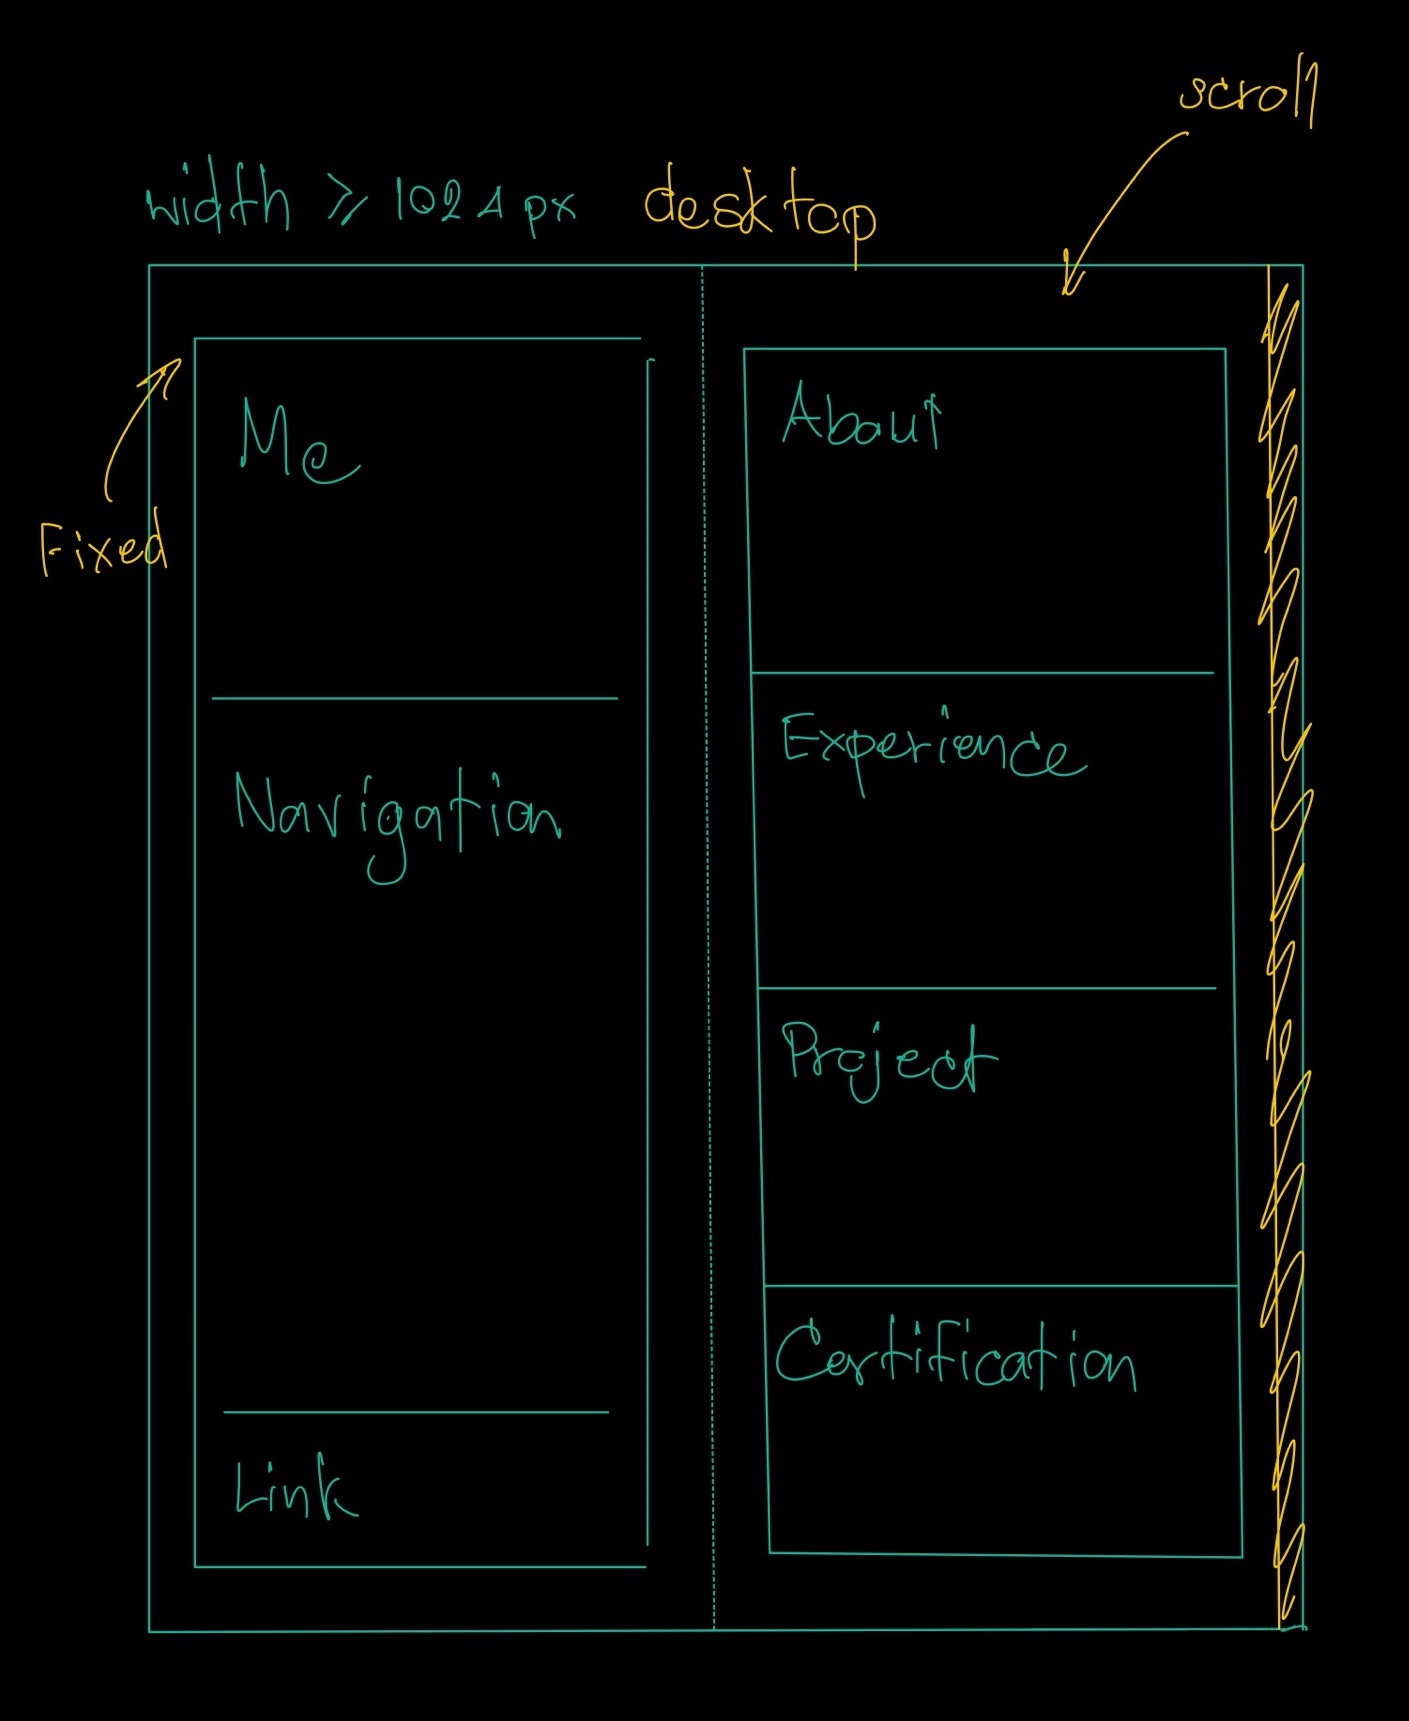 scroll
width ≥ 1024px desktop
Fixed
Me
Navigation
Link
About
Experience
Project
Certification